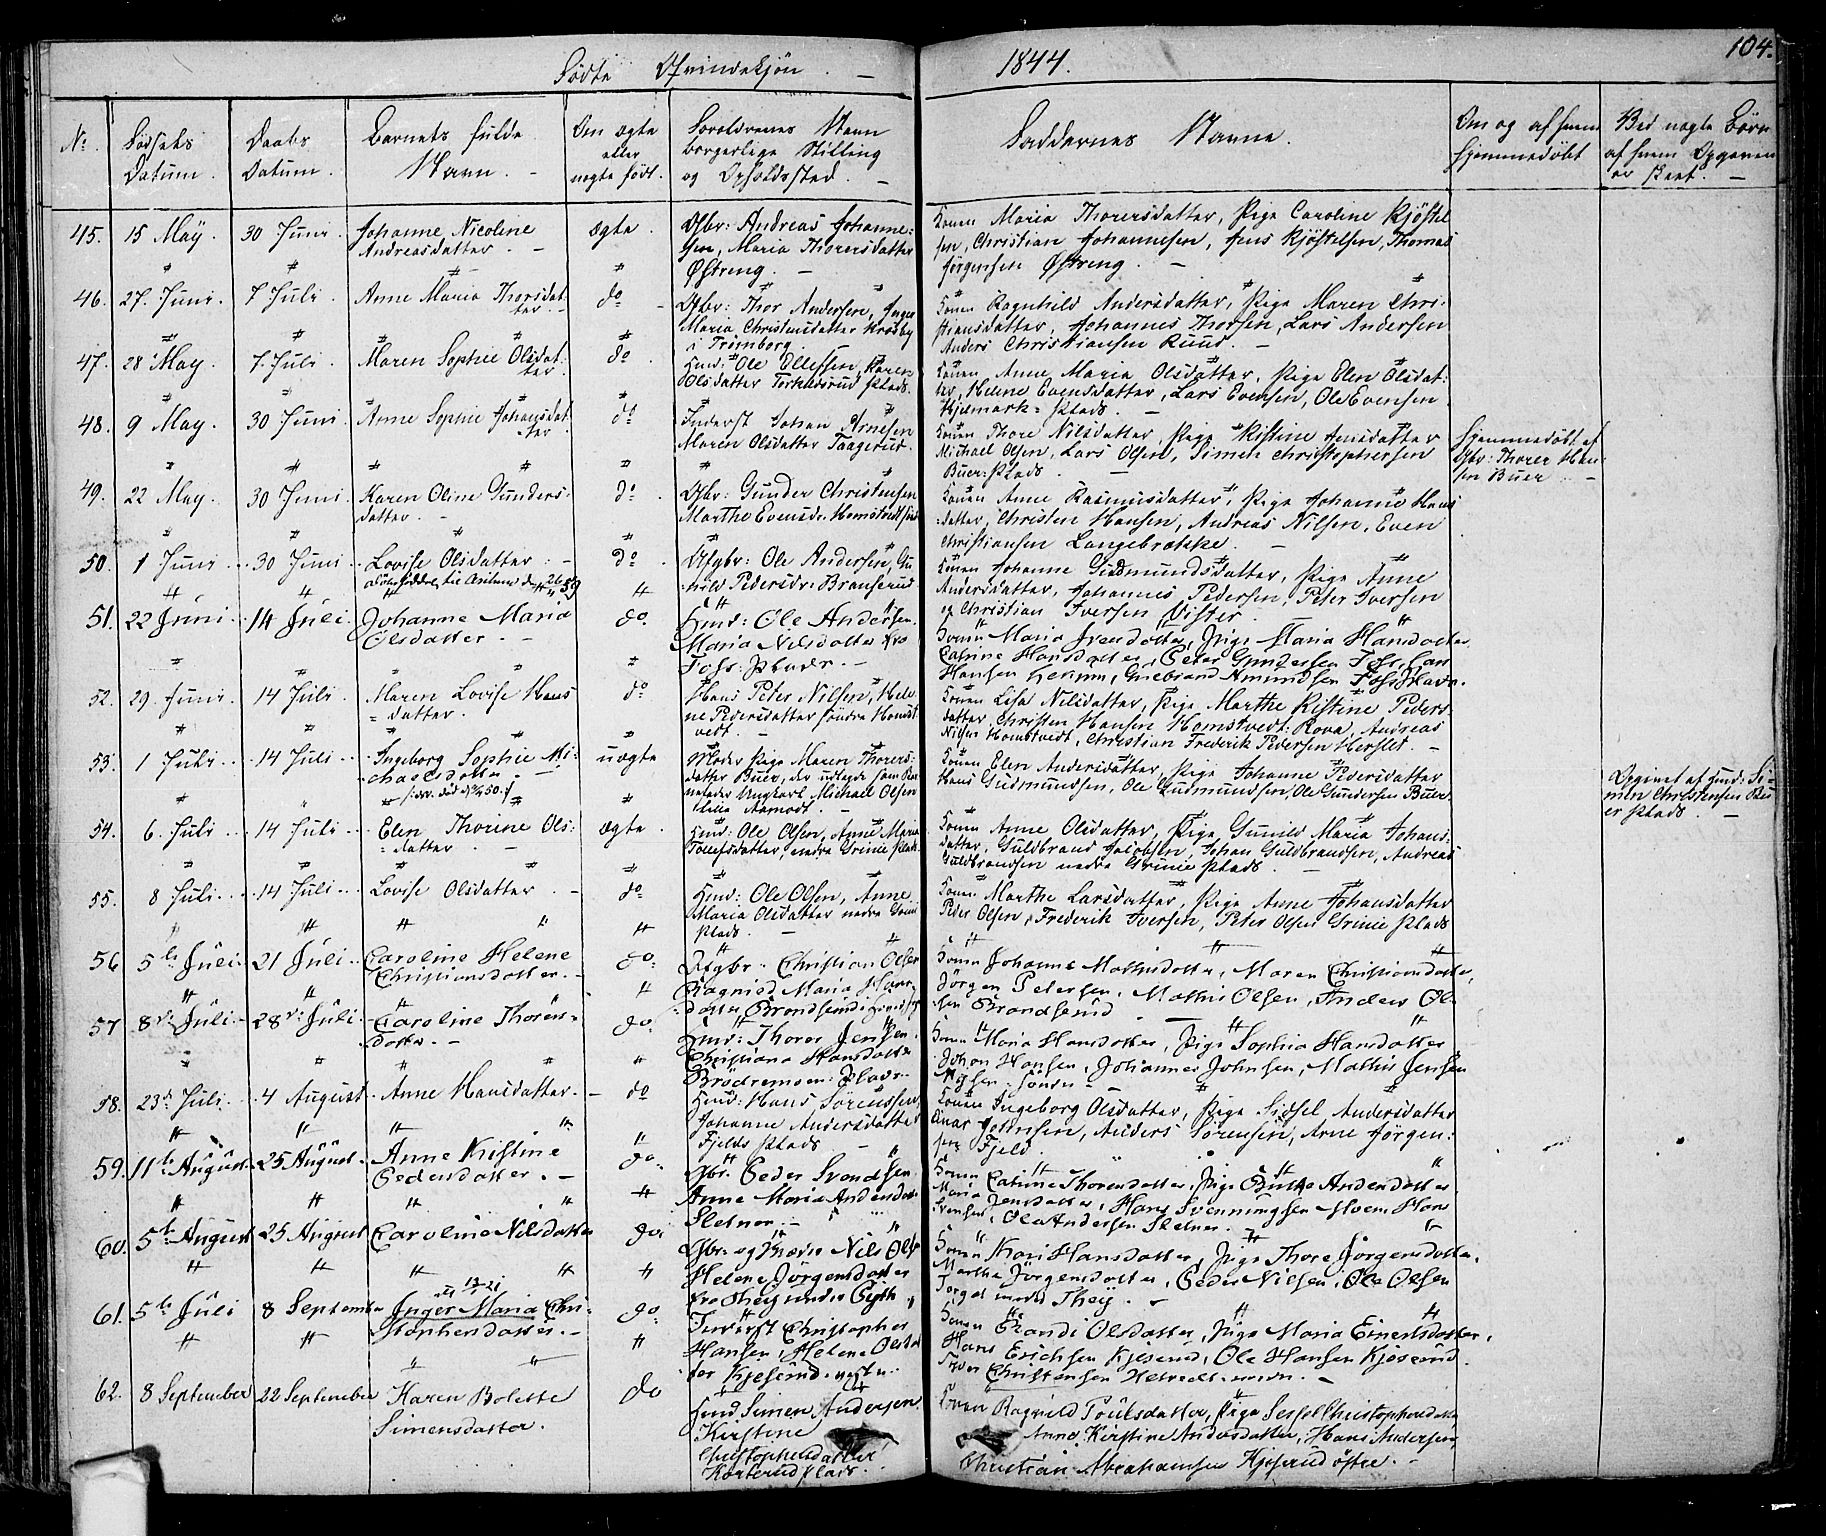 104.
Fødte Qvindekjøn. — 1844.
No. Fødsels Datum. Daabs Datum. Barnets fulde Navn. — Om ægte eller uægte født. Forældrenes Navn borgerlige Stilling og Opholdssted. — Faddernes Navne. Om og af hvem hjemmedøbt Ved uægte Børn af hvem Opgaven er skeet. —
45. 15 May. 30 Juni. Johanne Nicoline Andreasdatter. — ægte. Gbr: Andreas Johannesen, Maria Thorersdatter Østreng. — Konen Maria Thorersdatter, Pige Caroline Kjøstelsen, Christian Johannesen, Jens Kjøstelsen, Thomas Jørgensen Østreng. —
46. 27. Juni. 7 Juli. Anne Maria Thorsdatter. — do — Gbr: Thor Andersen, Inger Maria Christensdatter Krosby i Trømborg. Konen Ragnhild Andersdatter, Pige Maren Christiansdatter, Johannes Thorsen, Lars Andersen Anders Christiansen Ruud. —
47. 28 May. 7. Juli. Maren Sophie Olsdatter. do. Huusm: Ole Ellefsen, Karen Olsdatter Torkildsrud Plads. Konen Anne Maria Olsdatter, Pige Elen Olsdatter, Helene Evensdatter, Lars Evensen, Ole Evensen Hjelmark-Plads. —
48. 9 May. 30 Juni. Anne Sophie Johansdatter. do Inderst Johan Arnesen Maren Olsdatter Taagerud. Konen Thore Nilsdatter, Pige Kistine Jensdatter Michael Olsen, Lars Olsen, Simen Christophersen Buer-Plads. — Hjemmedøbt af Gbr: Thorer Hansen Buer. —
49. 22 May. 30 Juni. Karen Oline Gundersdatter. — do. Gbr: Gunder Christensen Marthe Evensdr: Homstvedt Konen Anne Rasmusdatter, Pige Johanne Hansdatter, Christen Hansen, Andreas Nilsen, Even Christiansen Langebrække. —
50. 1 Juni. 30 Juni Lovise Olsdatter. — do. Gbr: Ole Andersen, Gunhild Pedersdr: Branserud Konen Johanne Gudmundsdatter, Pige Anne Andersdatter, Johannes Pedersen, Peter Iversen og Christian Iversen Vister.
51. 22 Juni. 14 Juli. Johanne Maria Olsdatter. — do. Huusm: Ole Andersen. Maria Nilsdatter Foss: Plads. — Konen Maria Iversdatter, Pige Maria Hansdatter Catrine Hansdatter, Peter Gundersen Foss, Lars Hansen, Amundsen Foss Plads.
52. 29. Juni. 14 Juli. Maren Lovise Hansdatter. do Hans Peter Nilsen, Helene Pedersdatter søndre Homstvedt. — Konen Lisa Nilsdatter, Pige Marthe Kistine Pedersdatter, Christen Hansen Homstvedt, Andreas Nilsen Homstvedt, Christian Frederik Pedersen Herslet. —
53. 1 Juli. 14 Juli. Ingeborg Sophie Michaelsdatter. — uægte Moder Pige Maren Thorersdatter Buer, der udlagde som Barnefader Ungkarl Michael Olsen Aamodt. — Konen Elen Andersdatter, Pige Johanne Pedersdatter Hans Gudmundsen, Ole Gudmundsen, Ole Gundersen Buer. Opgivet af Huusm: Simen Christensen Buer Plads. —
54. 6. Juli. 14 Juli. Elen Thorine Olsdatter. — ægte. Huusm: Ole Olsen, Anne Maria Tollefsdatter, nedre Grinie Plads. Konen Anne Olsdatter, Pige Gunild Maria Johansdatter, Guldbrand Jacobsen, Johan Guldbrandsen, Andreas Guldbrandsen nedre Grinie Plads. —
55. 8 Juli. 14 Juli. Lovise Olsdatter. — do Huusm: Ole Olsen, Anne Maria Olsdatter nedre Grinie Plads. — Konen Marthe Larsdatter, Pige Anne Johansdatter Peder Olsen, Frederik Iversen, Peter Olsen Grinie Plads
56 5te Juli. 21 Juli. Caroline Helene Christiansdatter. — do. Gbr: Christian Olsen Ragnild Maria Hansdatter Brandserud Konen Johanne Mathisdatter, Maren Christiansdatter, Jörgen Petersen, Mathis Olsen, Anders Olsen Brandserud —
57 8de Juli. 28de Juli. Caroline Thorersdatter. — do. Huusm: Thorer Jensen. Christiana Hansdatter Brödremoen: Plads. — Konen Maria Hansdatter, Pige Sophia Hansdatter Johan Hansen, Johannes Johnsen, Mathis Jensen
58. 23de Juli. 4 August. Anne Hansdatter. — do Huusm: Hans Sörensen, Johanne Andersdatter Fjelds Plads — Konen Ingeborg Olsdatter, Pige Sidsel Andersdatter Johnsen, Anders Sørensen, Arne Jørgensen Fjeld.
59. 11te August. 25 August. Anne Kristine Pedersdatter. — do. Gbr: Peder Svendsen. Anne Maria Andersdatter Sletner. — Konen Catrine Thorersdatter, Pige Birthe Andersdatter. Maria Jensdatter, Hans Svenningsen Moen, Hans Svensen, Ole Andersen Sletner. —
60. 5te August 25 August Caroline Nilsdatter do. Gbr: Nils Olsen Helene Jörgensdatter Konen Kari Hansdatter, Pige Thore Jörgensdatter. Marthe Jörgensdatter, Peder Nilsen, Ole Olsen
61. 5te Juli 8 September Inger Maria Christophersdatter. — do. Inderst Christopher Hansen, Helene Olsdatter Kjeserud Konen Randi Olsdatter, Pige Maria Einertsdatter, Hans Erichsen Kjeserud, Ole Hansen Kjeserud. Christensen
62. 8 September 22 September Karen Bolette Simensdatter. do Huusm Simen Andersen. Kirstine Christophersdatter Korterud Plads. — Konen Ragnild Poulsdatter, Pige Sessel Christophersdatter Anne Kirstine Andersdatter, Hans Andersen, Christian Abrahamsen Kjöserud østre. —